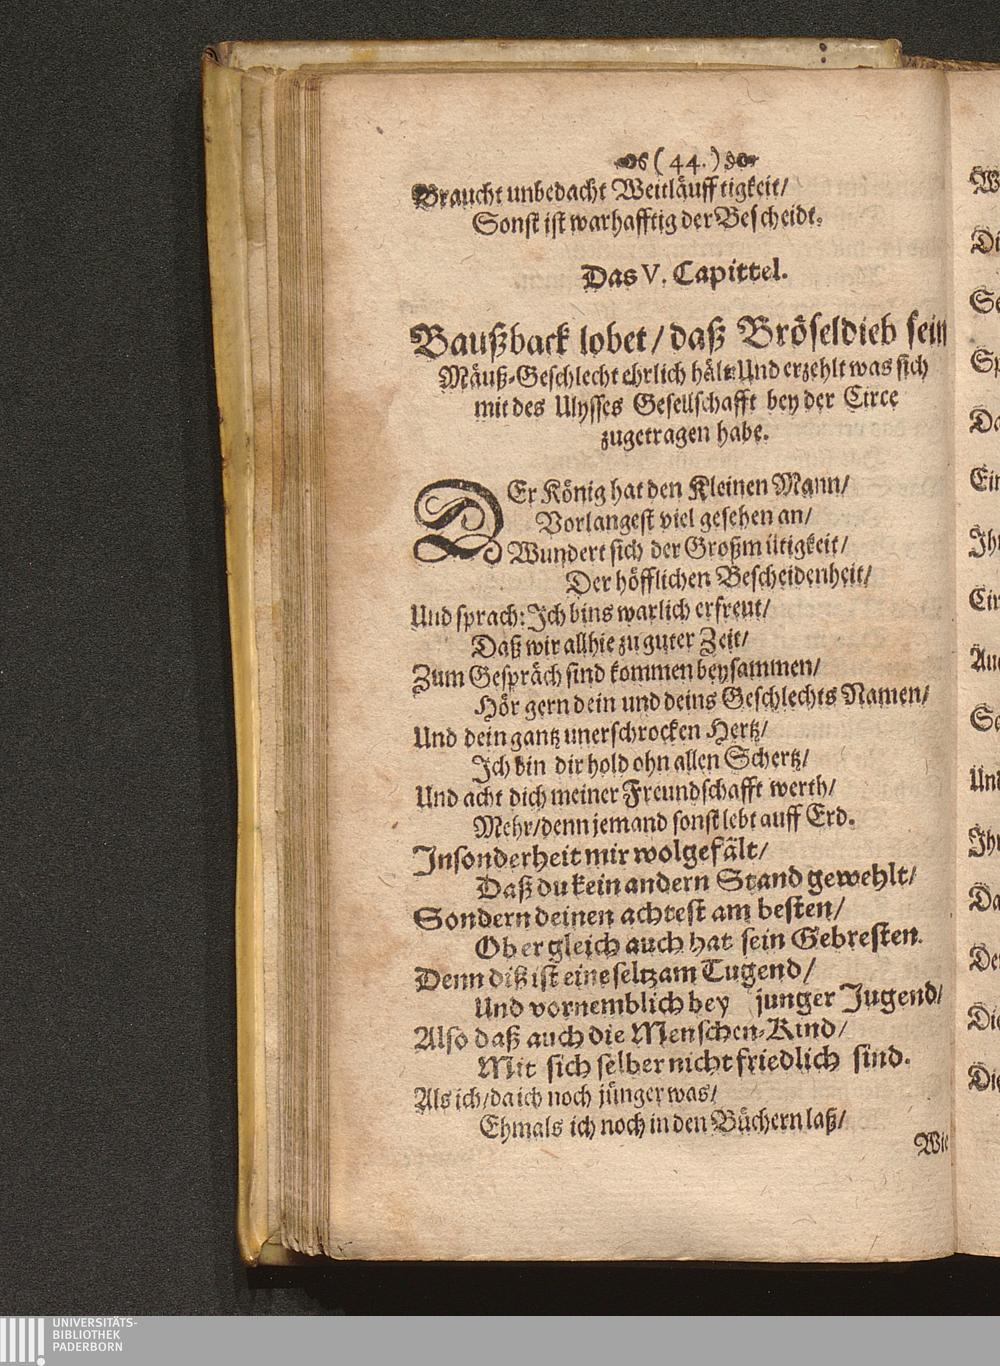 (44.)
Braucht unbedacht Weitläufftigkeit/
Sonst ist warhafftig der Bescheidt.
Das V. Capittel.
Baußback lobet/ daß Bröseldieb sein
Mäuß-Geschlecht ehrlich hält: Und erzehlt was sich
mit des Ulysses Gesellschafft bey der Circe
zugetragen habe.
DEr König hat den Kleinen Mann/
Vorlangest viel gesehen an/
Wundert sich der Großmütigkeit/
Der höfflichen Bescheidenheit/
Und sprach: Ich bins warlich erfreut/
Daß wir allhie zu guter Zeit/
Zum Gespräch sind kommen beysammen/
Hör gern dein und deins Geschlechts Namen/
Und dein gantz unerschrocken Hertz/
Ich bin dir hold ohn allen Schertz/
Und acht dich meiner Freundschafft werth/
Mehr/ denn jemand sonst lebt auff Erd.
Insonderheit mir wolgefält/
Daß du kein andern Stand gewehlt/
Sondern deinen achtest am besten/
Ob er gleich auch hat sein Gebresten.
Denn diß ist eine seltzam Tugend/
Und vornemblich bey junger Jugend/
Also daß auch die Menschen-Kind/
Mit sich selber nicht friedlich sind.
Als ich/ da ich noch jünger was/
Ehmals ich noch in den Büchern laß/
Wie
W
Di
Se
Sp
Da
Ein
Ihr
Ein
Au
Se
Und
Ihr
Da
De
Die
Die
UNIVERSITÄTS-
BIBLIOTHEK
PADERBORN